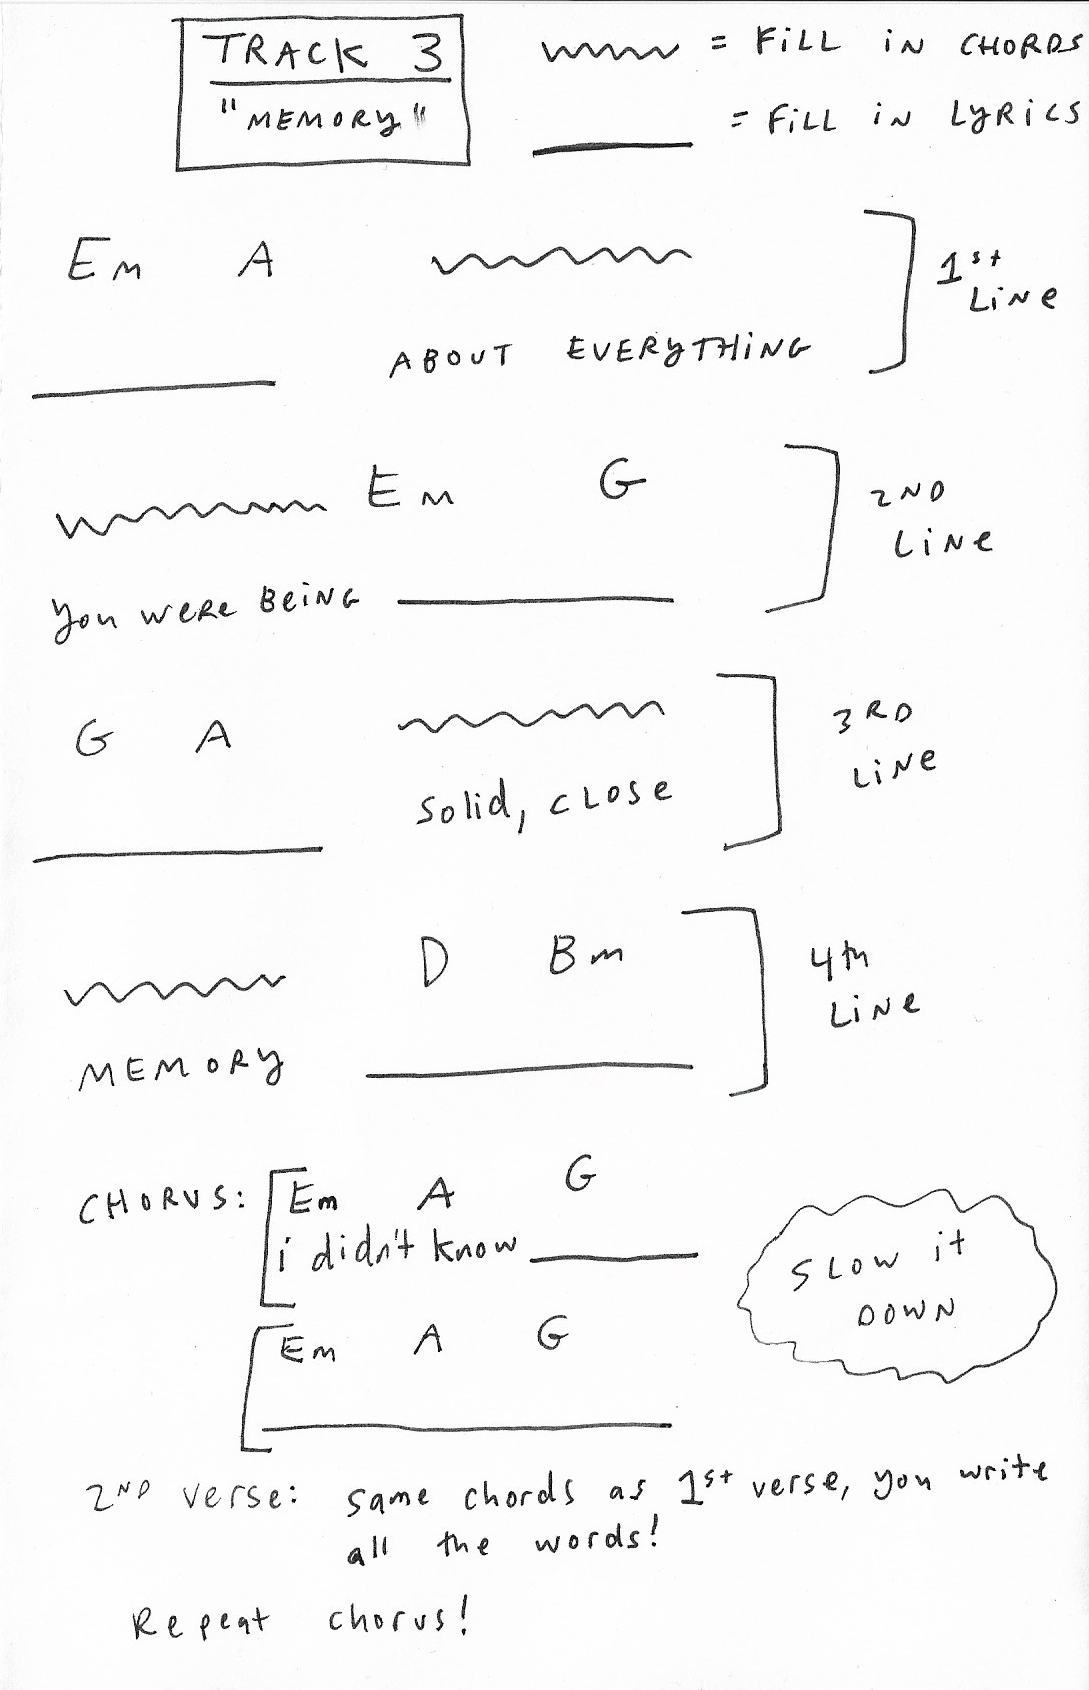 TRACK 3
"MEMORY"
= FiLL iN CHORDS
= FiLL iN LyRiCS
Em A
1st
LiNe
ABOUT EVERyTHiNG
Em G
2ND
LiNe
you weRe BeiNG
G A
3RD
LiNe
Solid, CLOSe
D Bm
4th
LiNe
MEMORy
CHORUS:
Em A G
i didn't know
SLOW it
DOWN
Em A G
2ND verse: same chords as 1st verse, you write
all the words!
Repeat chorus!